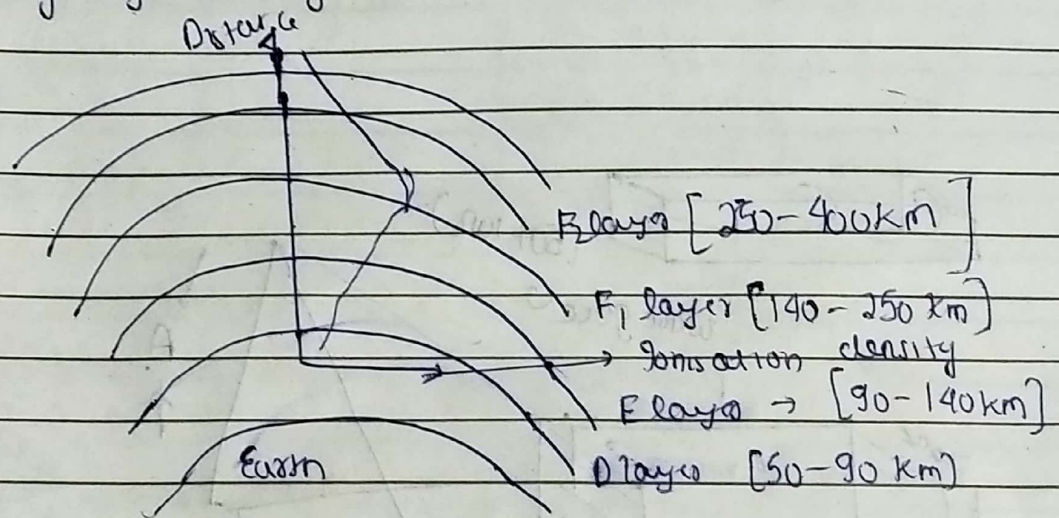 Distance
F2 layer [250-400km]
F1 layer [140-250 km]
Ionisation density
E layer → [90-140km]
D layer [50-90 km)
Earth